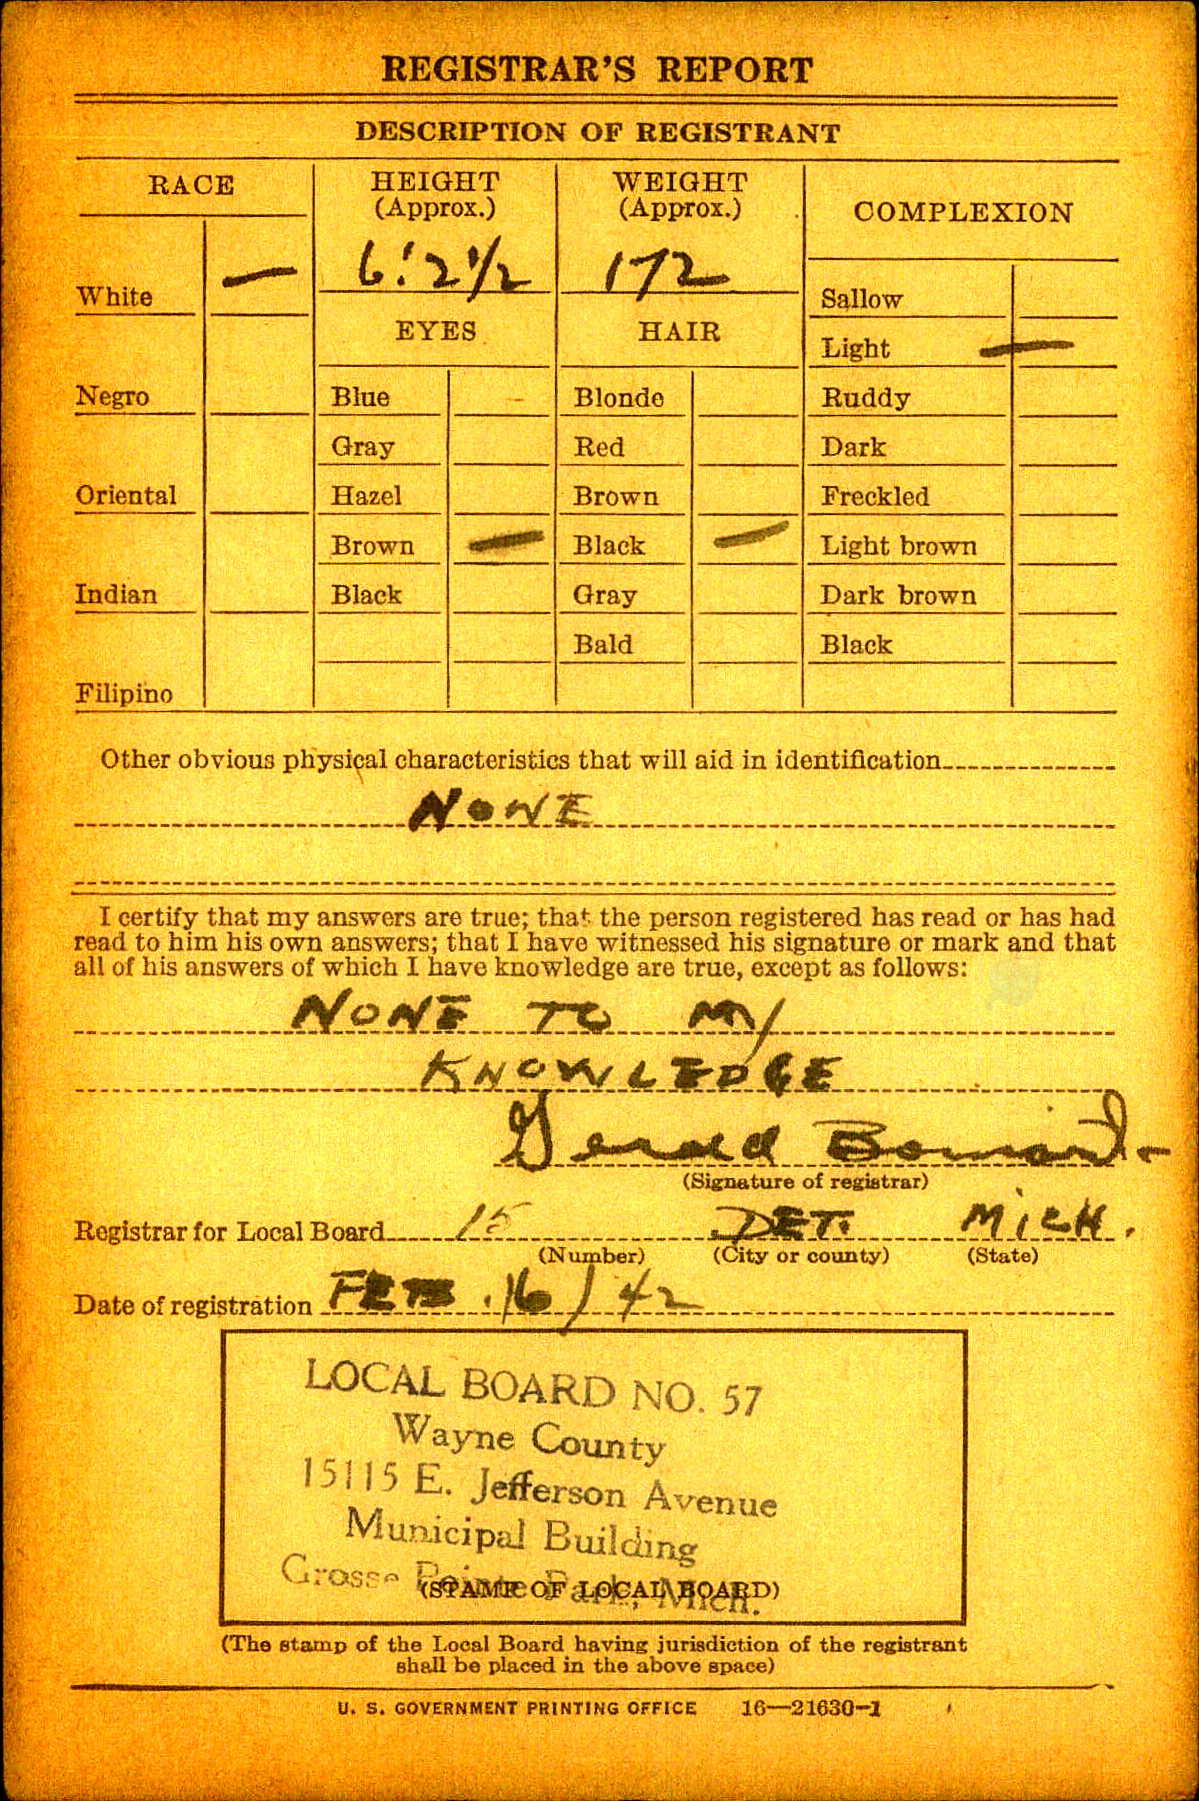 REGISTRAR'S REPORT
DESCRIPTION OF REGISTRANT
RACE
HEIGHT
(Approx.)
WEIGHT
(Approx.)
COMPLEXION
6'2½
172
White —
EYES
HAIR
Sallow
Light —
Negro
Blue
Blonde
Ruddy
Gray
Red
Dark
Oriental
Hazel
Brown
Freckled
Brown —
Black —
Light brown
Indian
Black
Gray
Dark brown
Bald
Black
Filipino
Other obvious physical characteristics that will aid in identification
NONE
I certify that my answers are true; that the person registered has read or has had
read to him his own answers; that I have witnessed his signature or mark and that
all of his answers of which I have knowledge are true, except as follows:
NONE TO MY
KNOWLEDGE
Gerald
(Signature of registrar)
Registrar for Local Board 15 DET. MICH.
(Number) (City or county) (State)
Date of registration FEB. 16/42
LOCAL BOARD NO. 57
Wayne County
15115 E. Jefferson Avenue
Municipal Building
Grosse Pointe Park, Mich.
(STAMP OF LOCAL BOARD)
(The stamp of the Local Board having jurisdiction of the registrant
shall be placed in the above space)
U. S. GOVERNMENT PRINTING OFFICE 16—21630-1